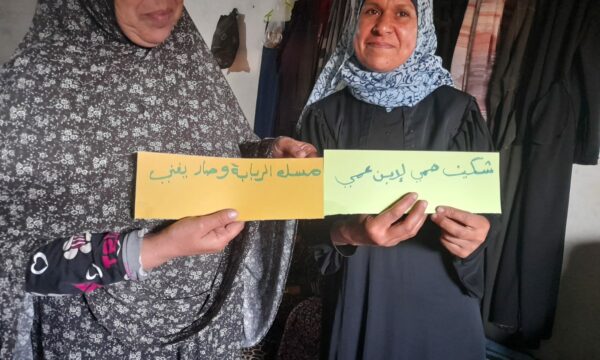 شكيت همي لإبن عمي
مسك الربابة وصار يغني